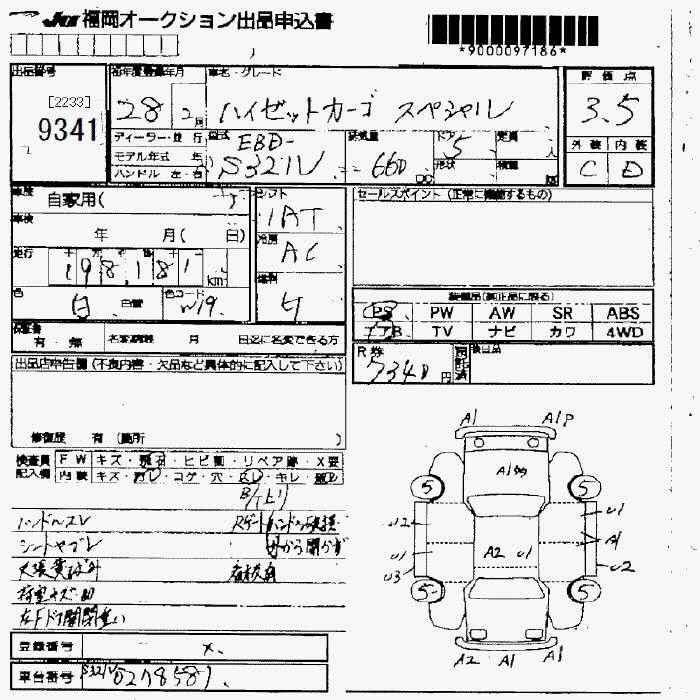 JU 福岡オークション出品申込書
*9000097186*
出品番号 初年度登録年月 車名・グレード 評価点
[2233]
9341
28 2月 ハイゼットカーゴ スペシャル 3.5
ディーラー・並行 型式 排気量 ドア 定員 外装 内装
モデル年式 年 EBD- 5 人 C D
ハンドル 左・右 S321V 660 cc 形状 積載 kg
車歴 自家用( ) シフト セールスポイント(正常に機能するもの)
車検 年 月( 日) IAT
走行 冷房 AC
198,181 km 燃料
色 白 白替 色コード W19 ガ
装備品(純正品に限る)
PS PW AW SR ABS
エアB TV ナビ カワ 4WD
保証書 有・無 名変期限 月 日迄に名変できる方
R券 7340円 預託済 後日品
出品店申告欄(不良内容・欠品など具体的に記入して下さい)
修復歴 有(箇所 )
検査員 FW キズ・飛石・ヒビ割・リペア跡・X要
記入欄 内装 キズ・ヨレ・コゲ・穴・スレ・キレ・
ハンドルスレ
シートヤブレ
荷室キズ・凹
左Fドア開閉
登録番号
車台番号 S321V 0278587
A1 A1P
5 A1 5
U2 U1
A1
U1 A2 U1
U3 U2
5 5
A2 A1 A1